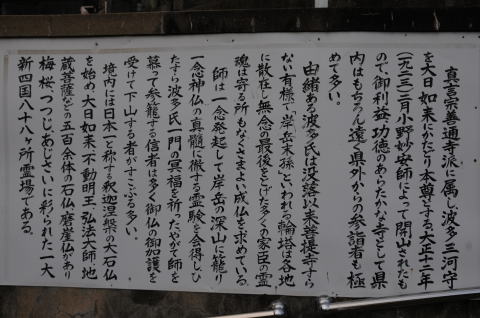 真言宗善通寺派に属し、波多三河守
を大日如来にかたどり本尊とする、大正十二年
(一九二三)三月小野妙安師によって開山されたも
ので、御利益、功徳のあらたかな寺として県
内はもちろん遠く県外からの参詣者も極
めて多い。
由緒ある波多氏は没落以来菩提寺すら
ない有様で「岸岳末孫」といわれる輪塔は各地
に散在し無念の最後をとげた多くの家臣の霊
魂は寄る所もなくさまよい成仏を求めている。
師は一念発起して岸岳の深山に籠り
一念神仏の真髄に徹する霊験を会得し、ひ
たすら波多氏一門の冥福を祈ったやがて師を
慕って参籠する信者は多く御仏の御加護を
受けて下山する者がすこぶる多い。
境内には日本一と称す釈迦涅槃の大石仏
を始め、大日如来、不動明王、弘法大師、地
蔵菩薩などの五百余体の石仏、磨崖仏があり
梅、桜、つつじ、あじさいに彩られた一大
新四国八十八ヶ所霊場である。